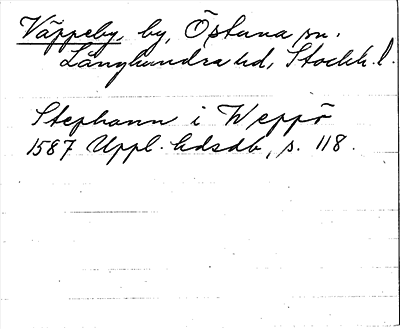 Väppeby, by, Östuna sn.
Långhundra hd, Stockh. l.
Stephann i Weppö
1587 Uppl. hdsdb, s. 118.